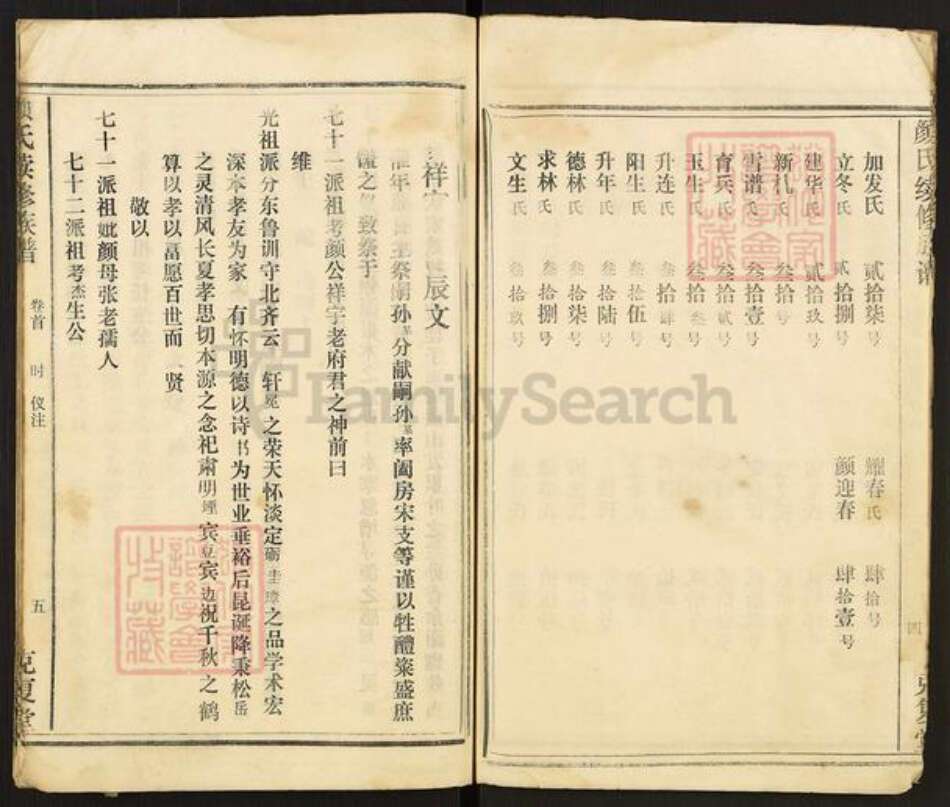 颜氏续修族谱
加发氏 贰拾柒号 耀春氏 肆拾号
立冬氏 贰拾捌号 颜迎春 肆拾壹号
建华氏 贰拾玖号
新机氏 叁拾号
雪谱氏 叁拾壹号
育兵氏 叁拾贰号
玉生氏 叁拾叁号
升连氏 叁拾肆号
阳生氏 叁拾伍号
升年氏 叁拾陆号
德林氏 叁拾柒号
求林氏 叁拾捌号
文生氏 叁拾玖号
四
祥 辰文
年 祭嗣孙某分献嗣孙某率阖房宋支等谨以牲醴粢盛庶
之 致祭于
七十一派祖考颜公祥宇老府君之神前曰
维
光祖派分东鲁训守北齐云 轩冕之荣天怀淡定 圭璋之品学术宏
深本孝友为家 有怀明德以诗书为世业垂裕后昆诞降秉松岳
之灵清风长夏孝思切本源之念祀肃明禋宾 宾边祝千秋之鹤
算以孝以亯愿百世而 贤
敬以
七十一派祖妣颜母张老孺人
七十二派祖考杰生公
氏续修族谱 卷首 时 仪注 五 克复堂
FamilySearch